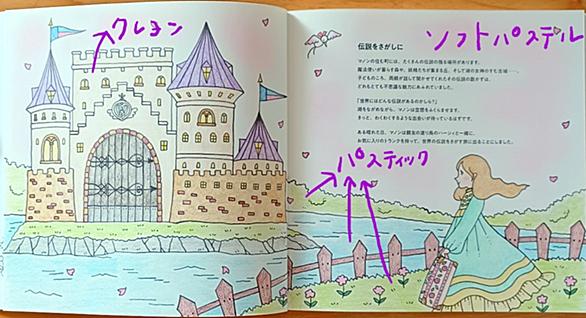 クレヨン
ソフトパステル
伝説をさがしに
マノンの住む町には、たくさんの伝説の残る場所があります。
魔法使いが暮らす森や、妖精たちが集まる丘、そして湖の女神のすむ古城……。
子どものころ、両親が話して聞かせてくれたその伝説の数かずは、
どれもとても不思議な魅力にあふれていました。
「世界にはどんな伝説があるのかしら?」
湖をながめながら、マノンは空想をふくらませます。
きっと、わくわくするような出会いが待っているはずです。
ある晴れた日、マノンは親友の渡り鳥のハーシィと一緒に、
お気に入りのトランクを持って、世界の伝説をさがす旅に出ることにしました。
パスティック